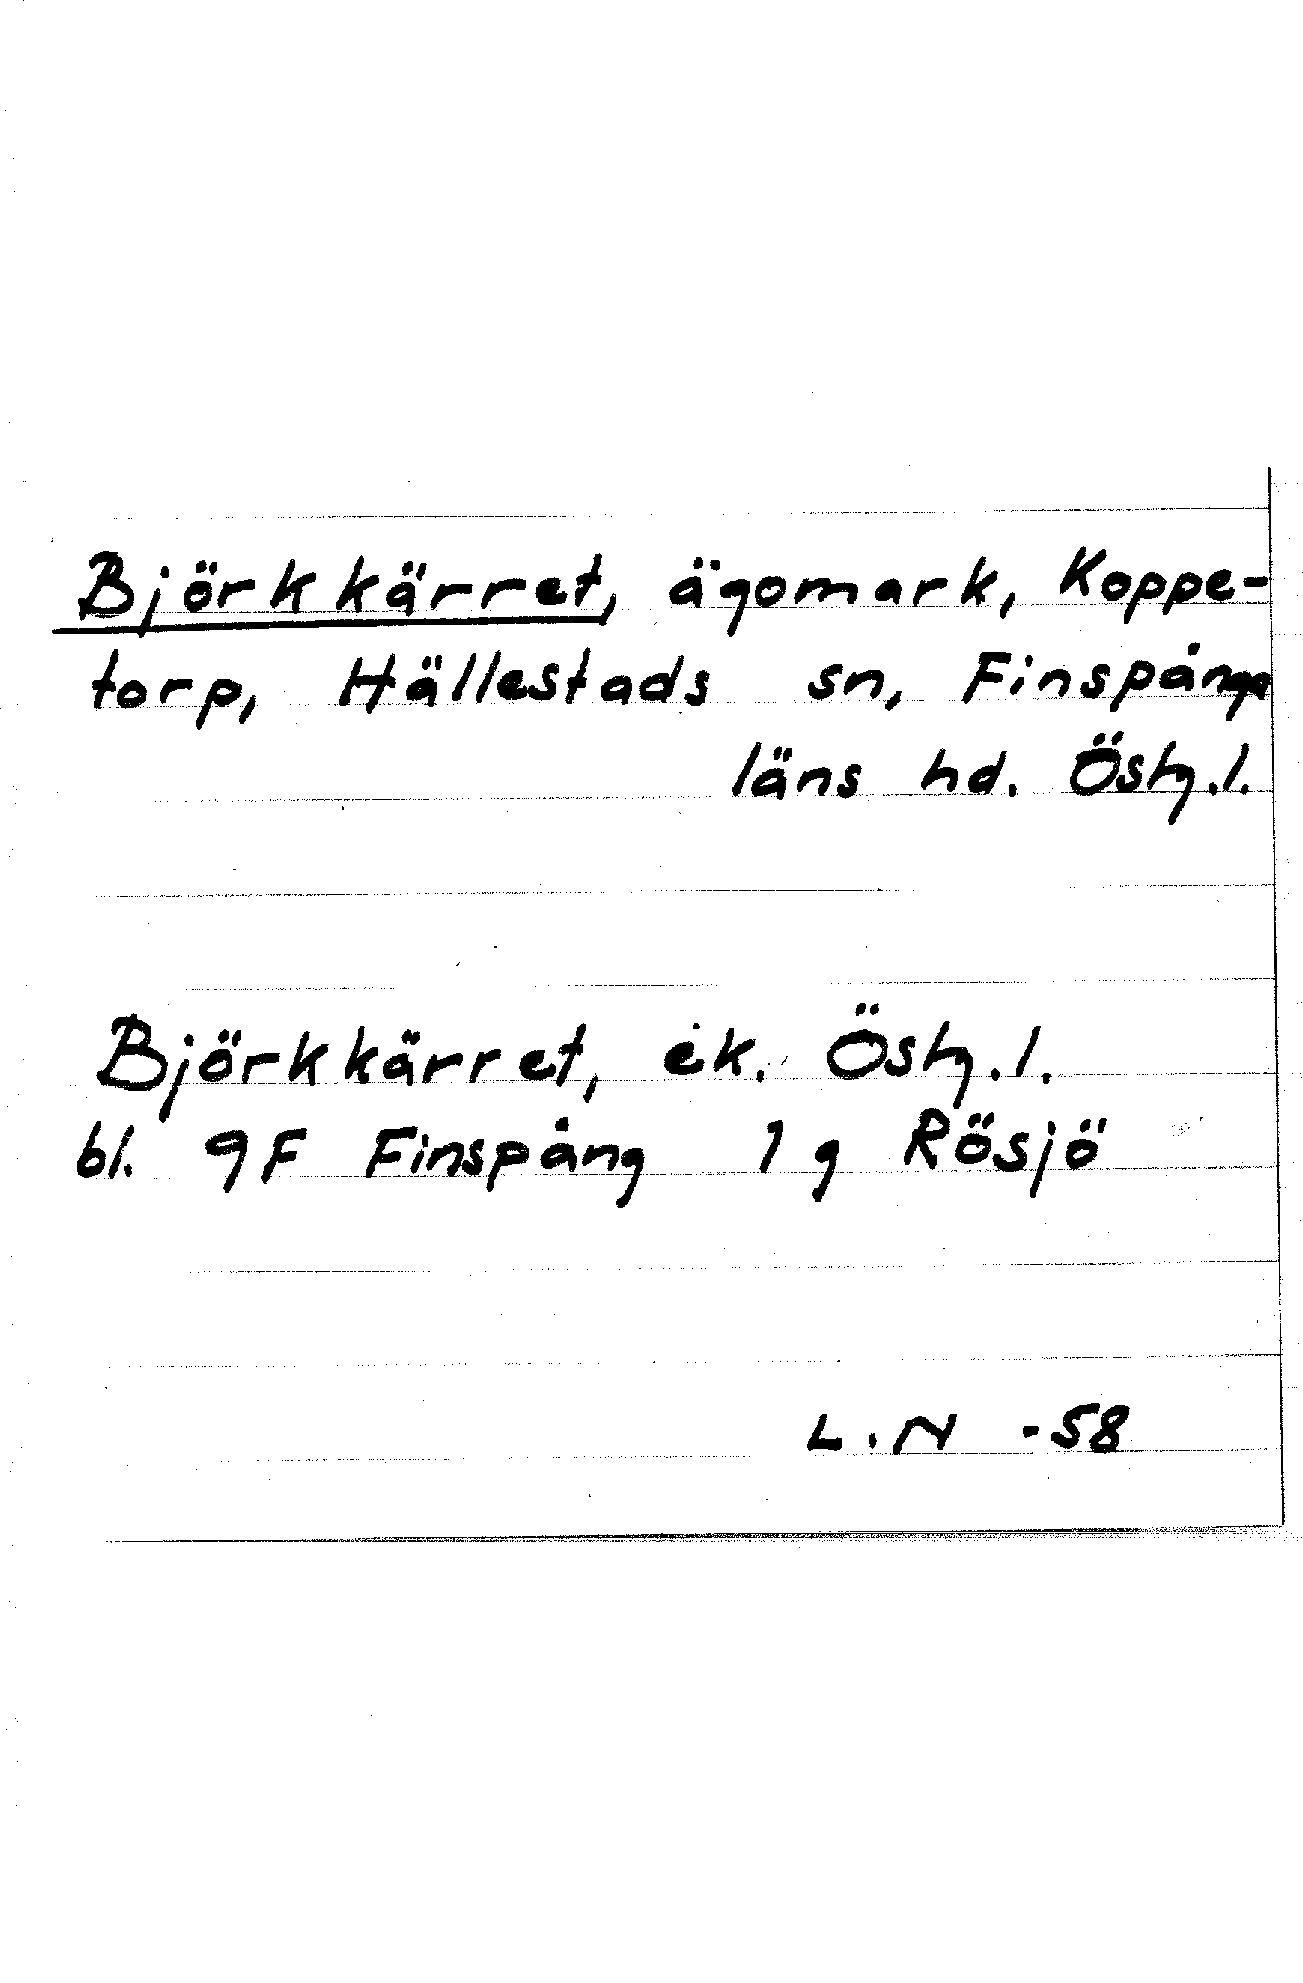 Björkkärret, ägomark, Koppe-
torp, Hällestads sn, Finspånga
läns hd. Östg.l.
Björkkärret, ek. Östg.l.
bl. 9F Finspång 1 g Rösjö
L.N -58